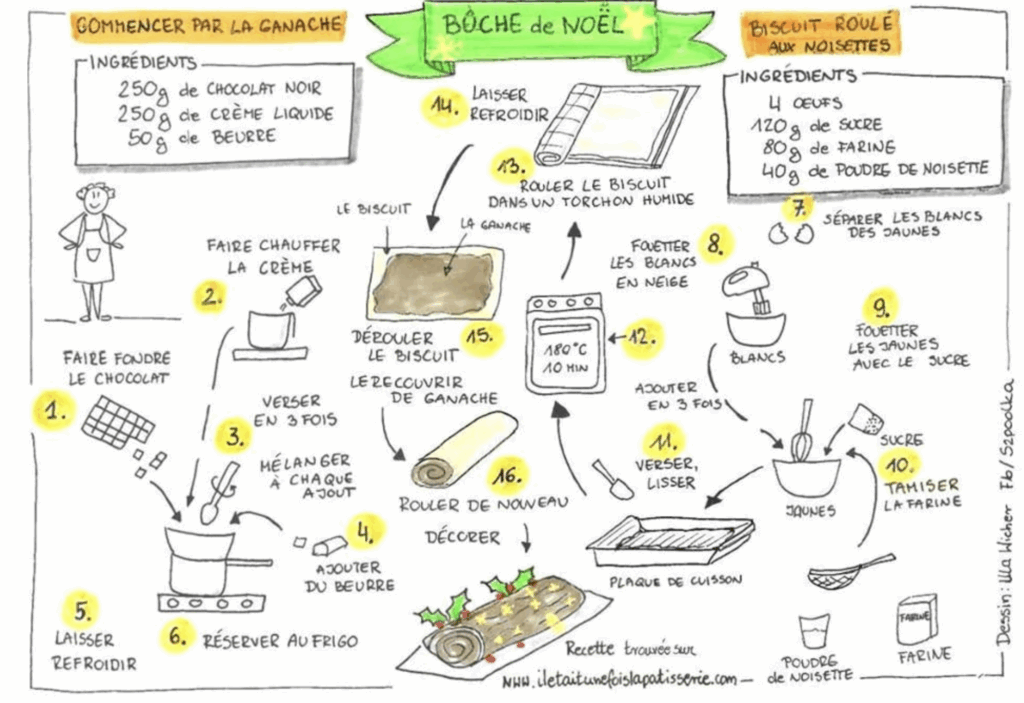 COMMENCER PAR LA GANACHE
INGRÉDIENTS
250g de CHOCOLAT NOIR
250g de CRÈME LIQUIDE
50g de BEURRE
BÛCHE de NOËL
BISCUIT ROULÉ
AUX NOISETTES
INGRÉDIENTS
4 OEUFS
120g de SUCRE
80g de FARINE
40g de POUDRE DE NOISETTE
1.
FAIRE FONDRE
LE CHOCOLAT
2.
FAIRE CHAUFFER
LA CRÈME
3.
VERSER
EN 3 FOIS
MÉLANGER
À CHAQUE
AJOUT
4.
AJOUTER
DU BEURRE
5.
LAISSER
REFROIDIR
6. RÉSERVER AU FRIGO
7.
SÉPARER LES BLANCS
DES JAUNES
8.
FOUETTER
LES BLANCS
EN NEIGE
BLANCS
9.
FOUETTER
LES JAUNES
AVEC LE SUCRE
AJOUTER
EN 3 FOIS
SUCRE
JAUNES
10.
TAMISER
LA FARINE
POUDRE
de NOISETTE
FARINE
FARINE
11.
VERSER,
LISSER
PLAQUE DE CUISSON
12.
180°C
10 MIN
13.
ROULER LE BISCUIT
DANS UN TORCHON HUMIDE
14. LAISSER
REFROIDIR
LE BISCUIT
LA GANACHE
DÉROULER 15.
LE BISCUIT
LE RECOUVRIR
DE GANACHE
16.
ROULER DE NOUVEAU
DÉCORER
Recette trouvée sur
www.iletaitunefoislapatisserie.com
Dessin: Ula Wicher Fb/ Szpoolka